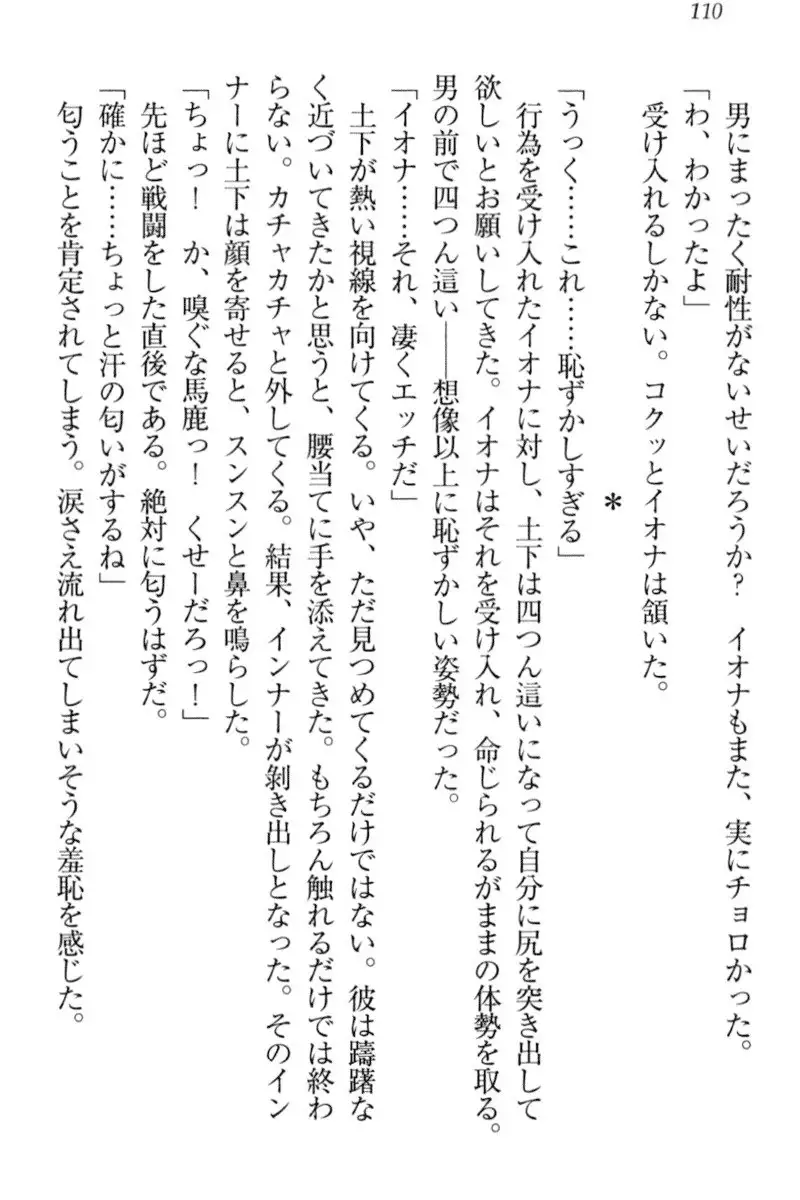 110
男にまったく耐性がないせいだろうか？　イオナもまた、実にチョロかった。
「わ、わかったよ」
受け入れるしかない。コクッとイオナは頷いた。
＊
「うっく……これ……恥ずかしすぎる」
行為を受け入れたイオナに対し、土下は四つん這いになって自分に尻を突き出して
欲しいとお願いしてきた。イオナはそれを受け入れ、命じられるがままの体勢を取る。
男の前で四つん這い――想像以上に恥ずかしい姿勢だった。
「イオナ……それ、凄くエッチだ」
土下が熱い視線を向けてくる。いや、ただ見つめてくるだけではない。彼は躊躇な
く近づいてきたかと思うと、腰当てに手を添えてきた。もちろん触れるだけでは終わ
らない。カチャカチャと外してくる。結果、インナーが剝き出しとなった。そのイン
ナーに土下は顔を寄せると、スンスンと鼻を鳴らした。
「ちょっ！　か、嗅ぐな馬鹿っ！　くせーだろっ！」
先ほど戦闘をした直後である。絶対に匂うはずだ。
「確かに……ちょっと汗の匂いがするね」
匂うことを肯定されてしまう。涙さえ流れ出てしまいそうな羞恥を感じた。